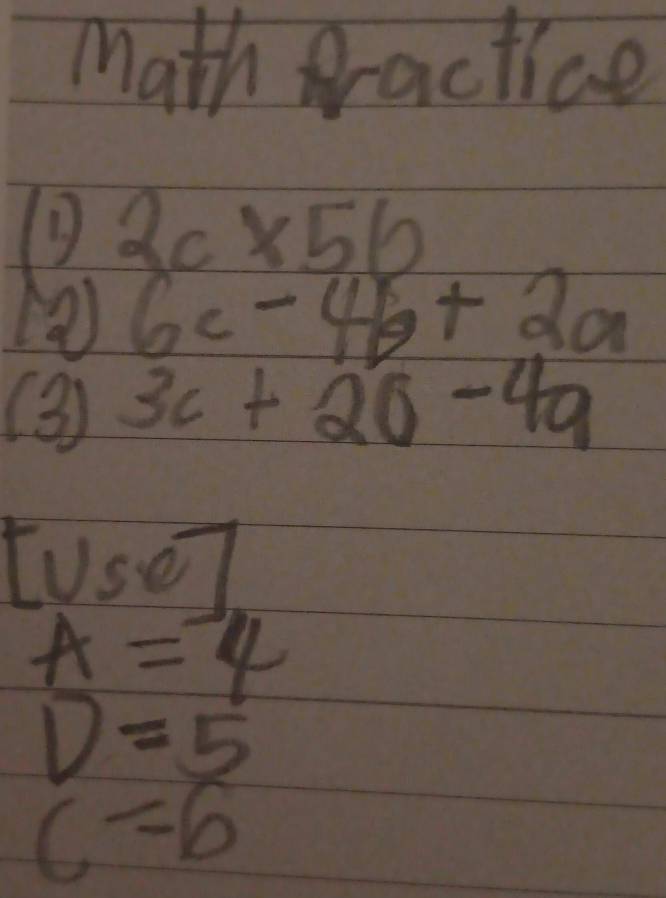 Math Practice
(1) 2c x 5b
(2) 6c - 4b + 2a
(3) 3c + 20 - 4a
[Use]
A = 4
D = 5
C = 6